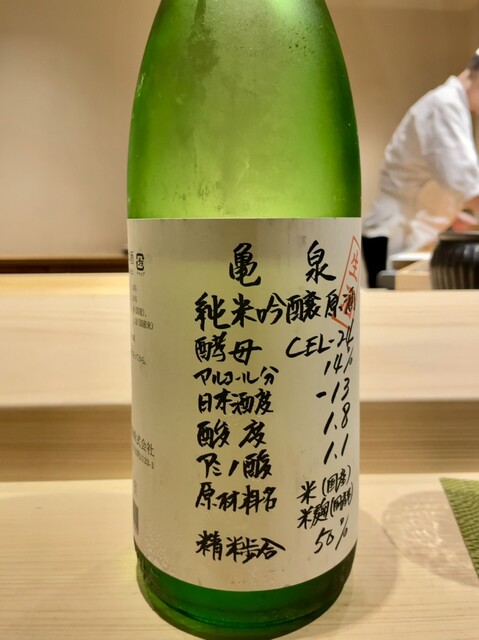 亀泉
生
純米吟醸原酒
酵母 CEL-24
アルコール分 14%
日本酒度 -13
酸度 1.8
アミノ酸 1.1
原材料名 米(国産)
米麹(国産米)
精米歩合 50%